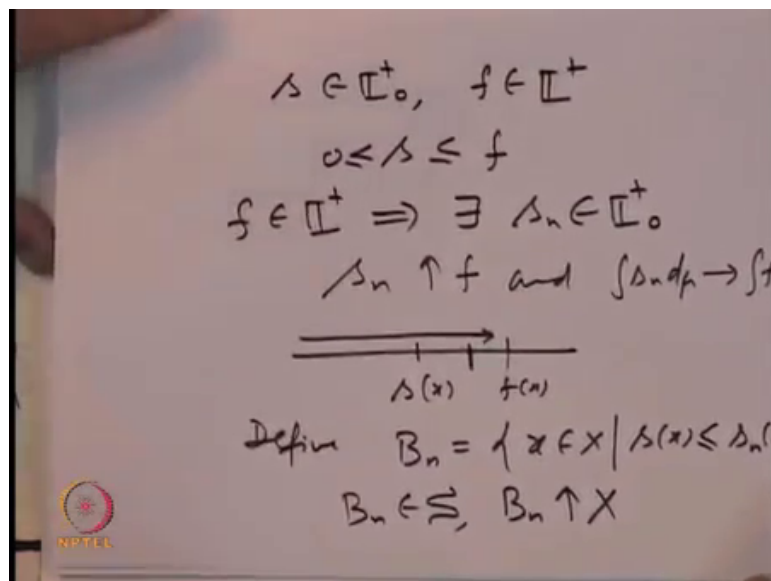 s ∈ 𝕃⁺₀, f ∈ 𝕃⁺
0 ≤ s ≤ f
f ∈ 𝕃⁺ ⟹ ∃ sₙ ∈ 𝕃⁺₀
sₙ ↑ f and ∫sₙdμ → ∫f
s(x) f(x)
Define Bₙ = { x ∈ X | s(x) ≤ sₙ(
Bₙ ∈ S, Bₙ ↑ X
NPTEL